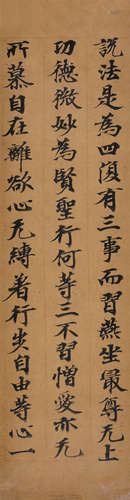 說法是為四復有三事而習燕坐最尊无上
功德微妙為賢聖行何等三不習憎愛亦无
所慕自在離欲心无縛著行步自由等心一